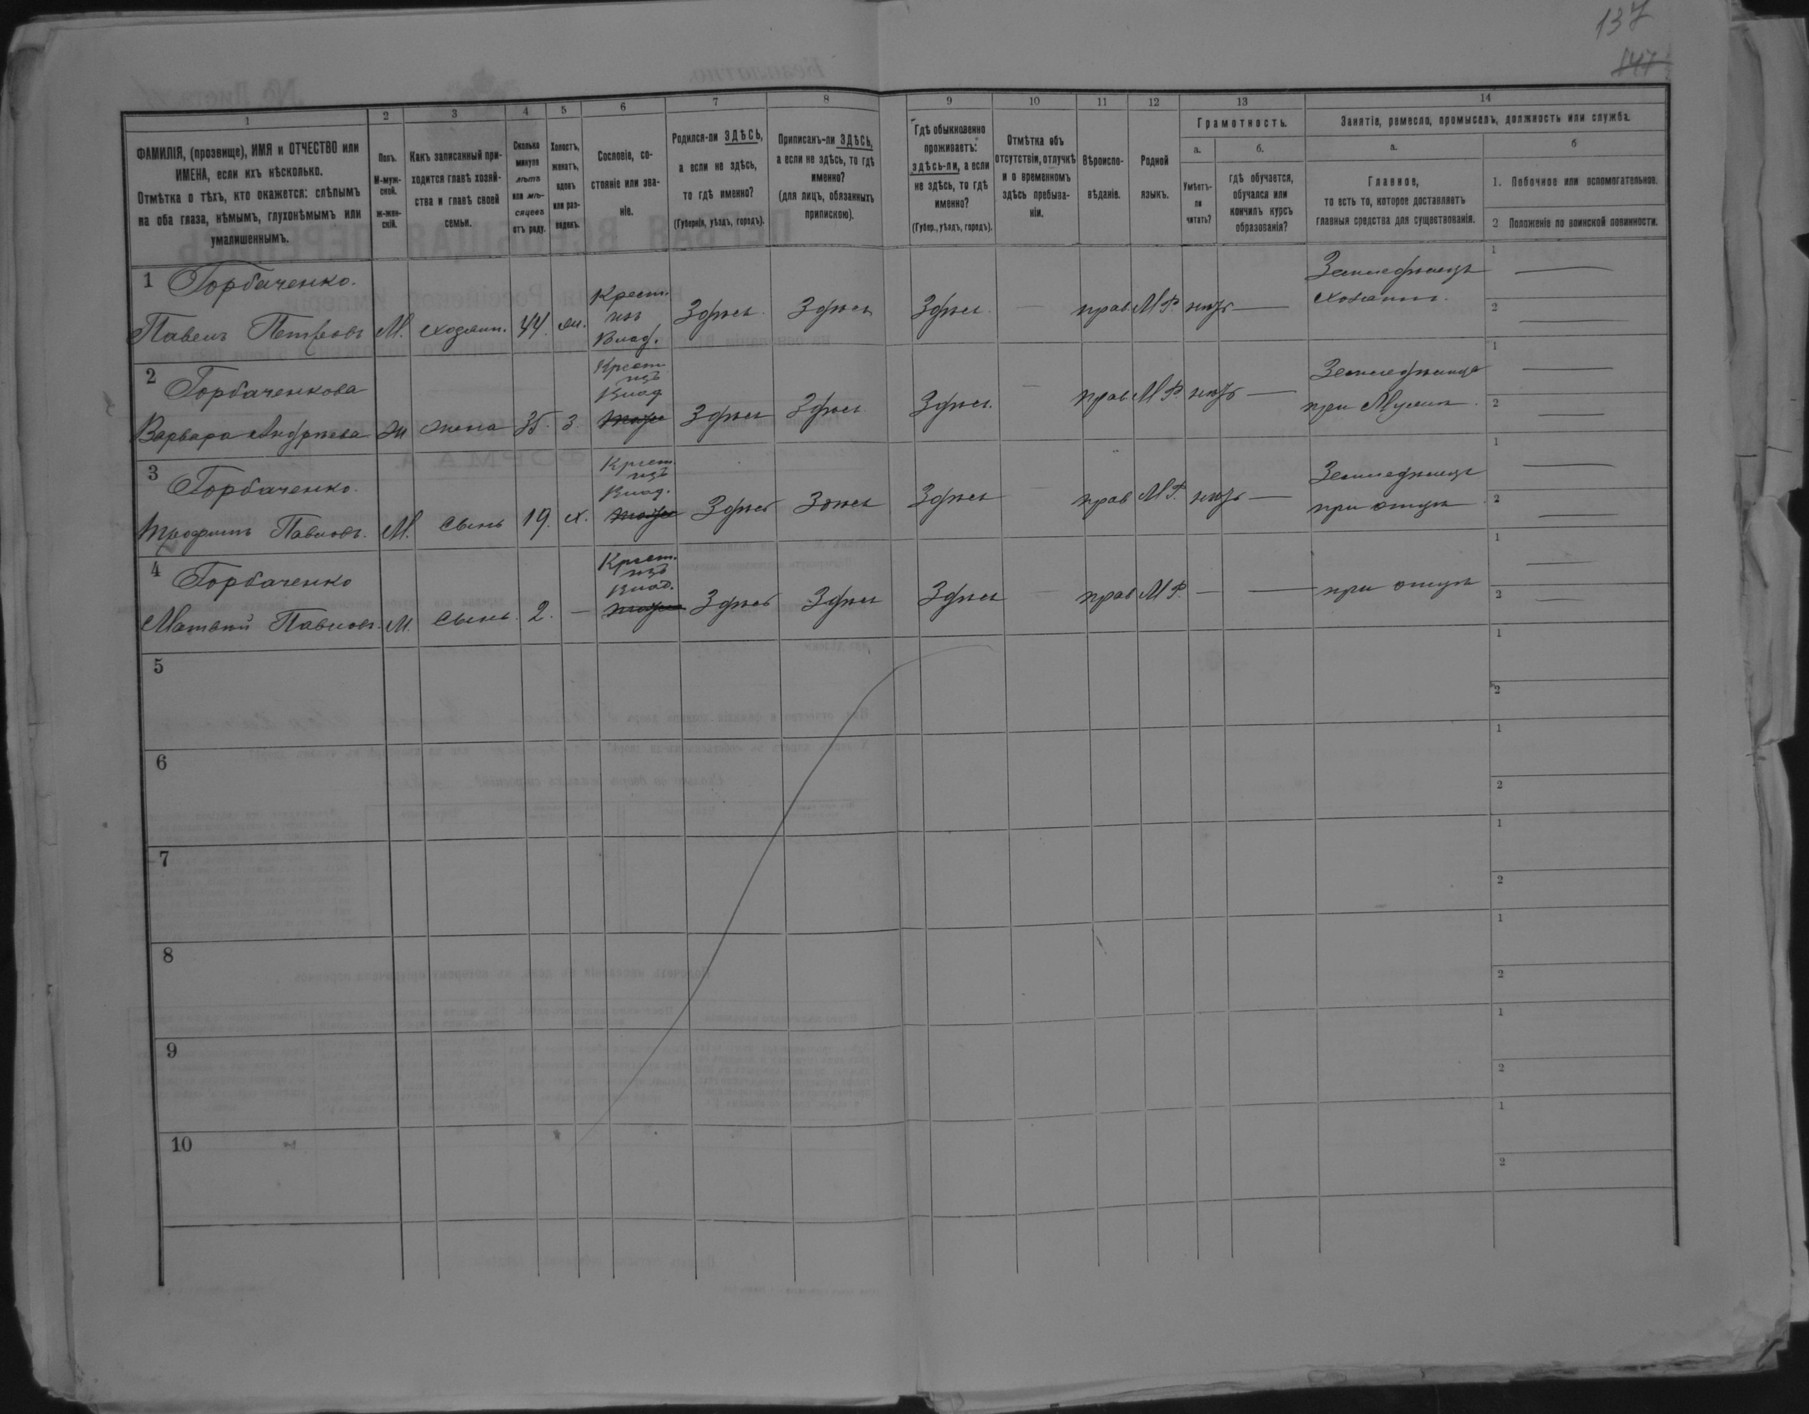 137
147
1
2
3
4
5
6
7
8
9
10
11
12
13
14
ФАМИЛІЯ, (прозвище), ИМЯ и ОТЧЕСТВО или
ИМЕНА, если ихъ нѣсколько.
Отмѣтка о тѣхъ, кто окажется: слѣпымъ
на оба глаза, нѣмымъ, глухонѣмымъ или
умалишеннымъ.
Полъ.
М-муж-
ской.
ж-жен-
скій.
Какъ записанный при-
ходится главѣ хозяй-
ства и главѣ своей
семьи.
Сколько
минуло
лѣтъ
или мѣ-
сяцевъ
отъ роду.
Холостъ,
женатъ,
вдовъ
или раз-
веденъ.
Сословіе, со-
стояніе или зва-
ніе.
Родился-ли ЗДѢСЬ,
а если не здѣсь,
то гдѣ именно?
(Губернія, уѣздъ, городъ).
Приписанъ-ли ЗДѢСЬ,
а если не здѣсь, то гдѣ
именно?
(для лицъ, обязанныхъ
припискою).
Гдѣ обыкновенно
проживаетъ:
здѣсь-ли, а если
не здѣсь, то гдѣ
именно?
(Губер., уѣздъ, городъ).
Отмѣтка объ
отсутствіи, отлучкѣ
и о временномъ
здѣсь пребыва-
ніи.
Вѣроиспо-
вѣданіе.
Родной
языкъ.
Грамотность.
а.
Умѣетъ-
ли
читать?
б.
гдѣ обучается,
обучался или
кончилъ курсъ
образованія?
Занятіе, ремесло, промыселъ, должность или служба.
а.
Главное,
то есть то, которое доставляетъ
главныя средства для существованія.
б
1. Побочное или вспомогательное.
2 Положеніе по воинской повинности.
1 Горбаченко.
Павелъ Петровъ М. хозяин. 44. жи.
Крест. изъ Влад. Здѣсь Здѣсь Здѣсь — прав М.Р. нѣтъ —
Земледѣлецъ
хозяинъ.
1 —
2 —
2 Горбаченкова
Варвара Андрѣева ж жена 35. з
Крест. изъ Влад Здѣсь Здѣсь Здѣсь. — прав М.Р. нѣтъ —
Земледѣлица
при Мужѣ.
1 —
2 —
3 Горбаченко.
Трофимъ Павловъ. М. сынъ 19. х.
Крест. изъ Влад. Здѣсь Здѣсь Здѣсь — прав М.Р. нѣтъ —
Земледѣлецъ
при отцѣ
1 —
2 —
4 Горбаченко
Матвѣй Павловъ. М. сынъ. 2. —
Крест. изъ Влад. Здѣсь Здѣсь Здѣсь — прав М.Р. — —
при отцѣ
1 —
2 —
5
1
2
6
1
2
7
1
2
8
1
2
9
1
2
10
1
2